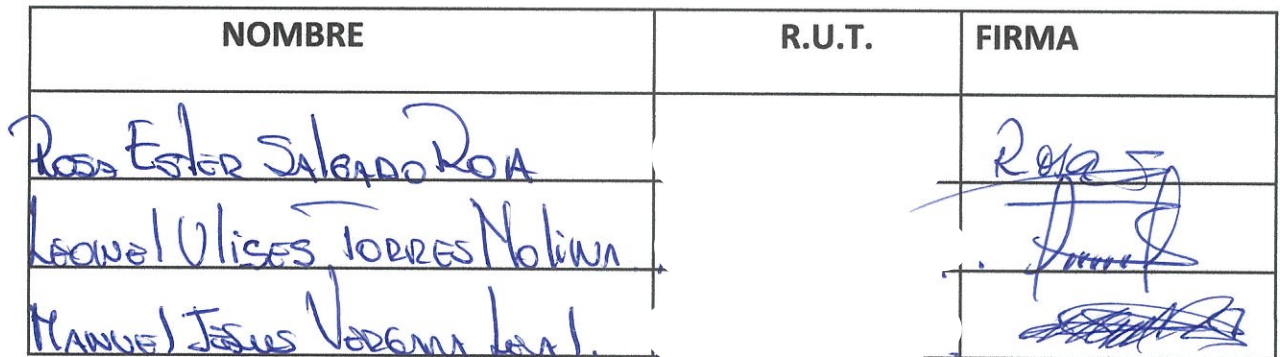 NOMBRE R.U.T. FIRMA
Rosa Ester Salgado Roa Rosa S
Leonel Ulises Torres Molina
Manuel Jesus Vergara Leal.